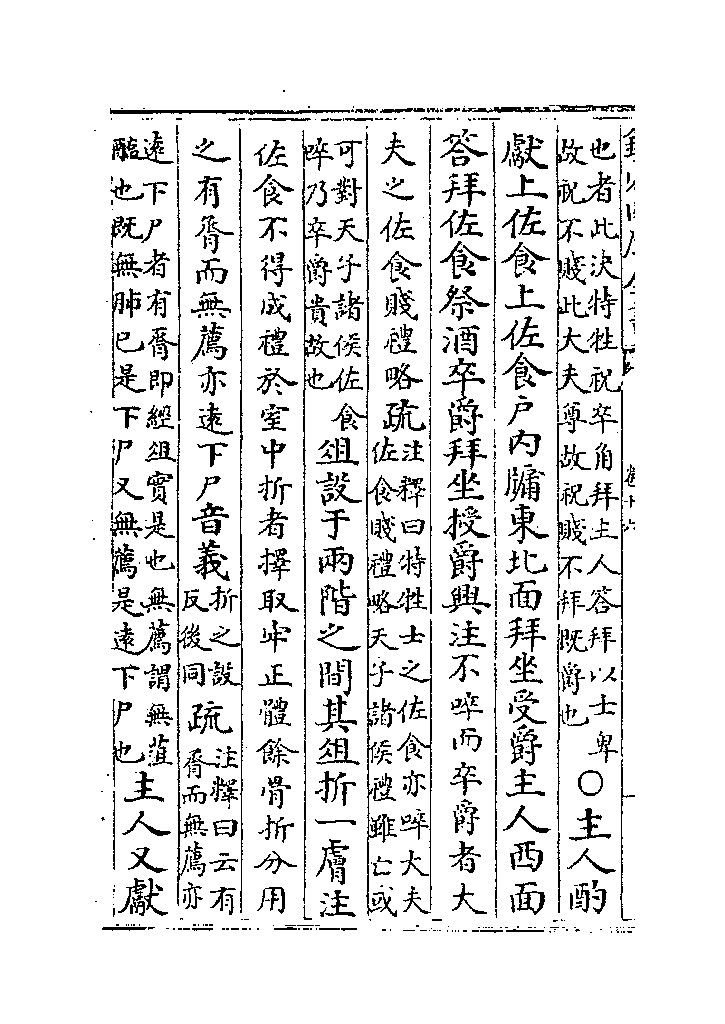 也者此決特牲祝卒角拜主人答拜以士卑故祝不賤此大夫尊故祝賤不拜既爵也○主人酌
獻上佐食上佐食户内牖東北面拜坐受爵主人西面
答拜佐食祭酒卒爵拜坐授爵興注不啐而卒爵者大
夫之佐食賤禮略疏注釋曰特牲士之佐食亦啐大夫佐食賤禮略天子諸侯禮雖亡或
可對天子諸侯佐食啐乃卒爵貴故也俎設于兩階之間其俎折一膚注
佐食不得成禮於室中折者擇取牢正體餘骨折分用
之有脀而無薦亦遠下尸音義折之設反後同疏注釋曰云有脀而無薦亦
遠下尸者有脀即經俎實是也無薦謂無菹醢也既無肺已是下尸又無薦是遠下尸也主人又獻